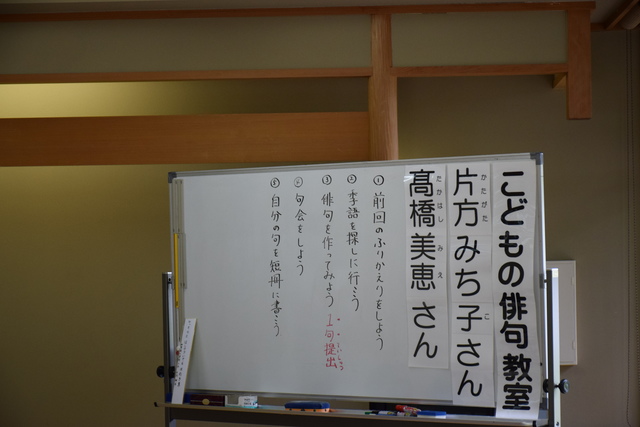 こどもの俳句教室
片方みち子さん
かたがた こ
髙橋美恵さん
たかはし みえ
① 前回のふりかえりをしよう
② 季語を探しに行こう
③ 俳句を作ってみよう 1句提出
④ 句会をしよう
⑤ 自分の句を短冊に書こう